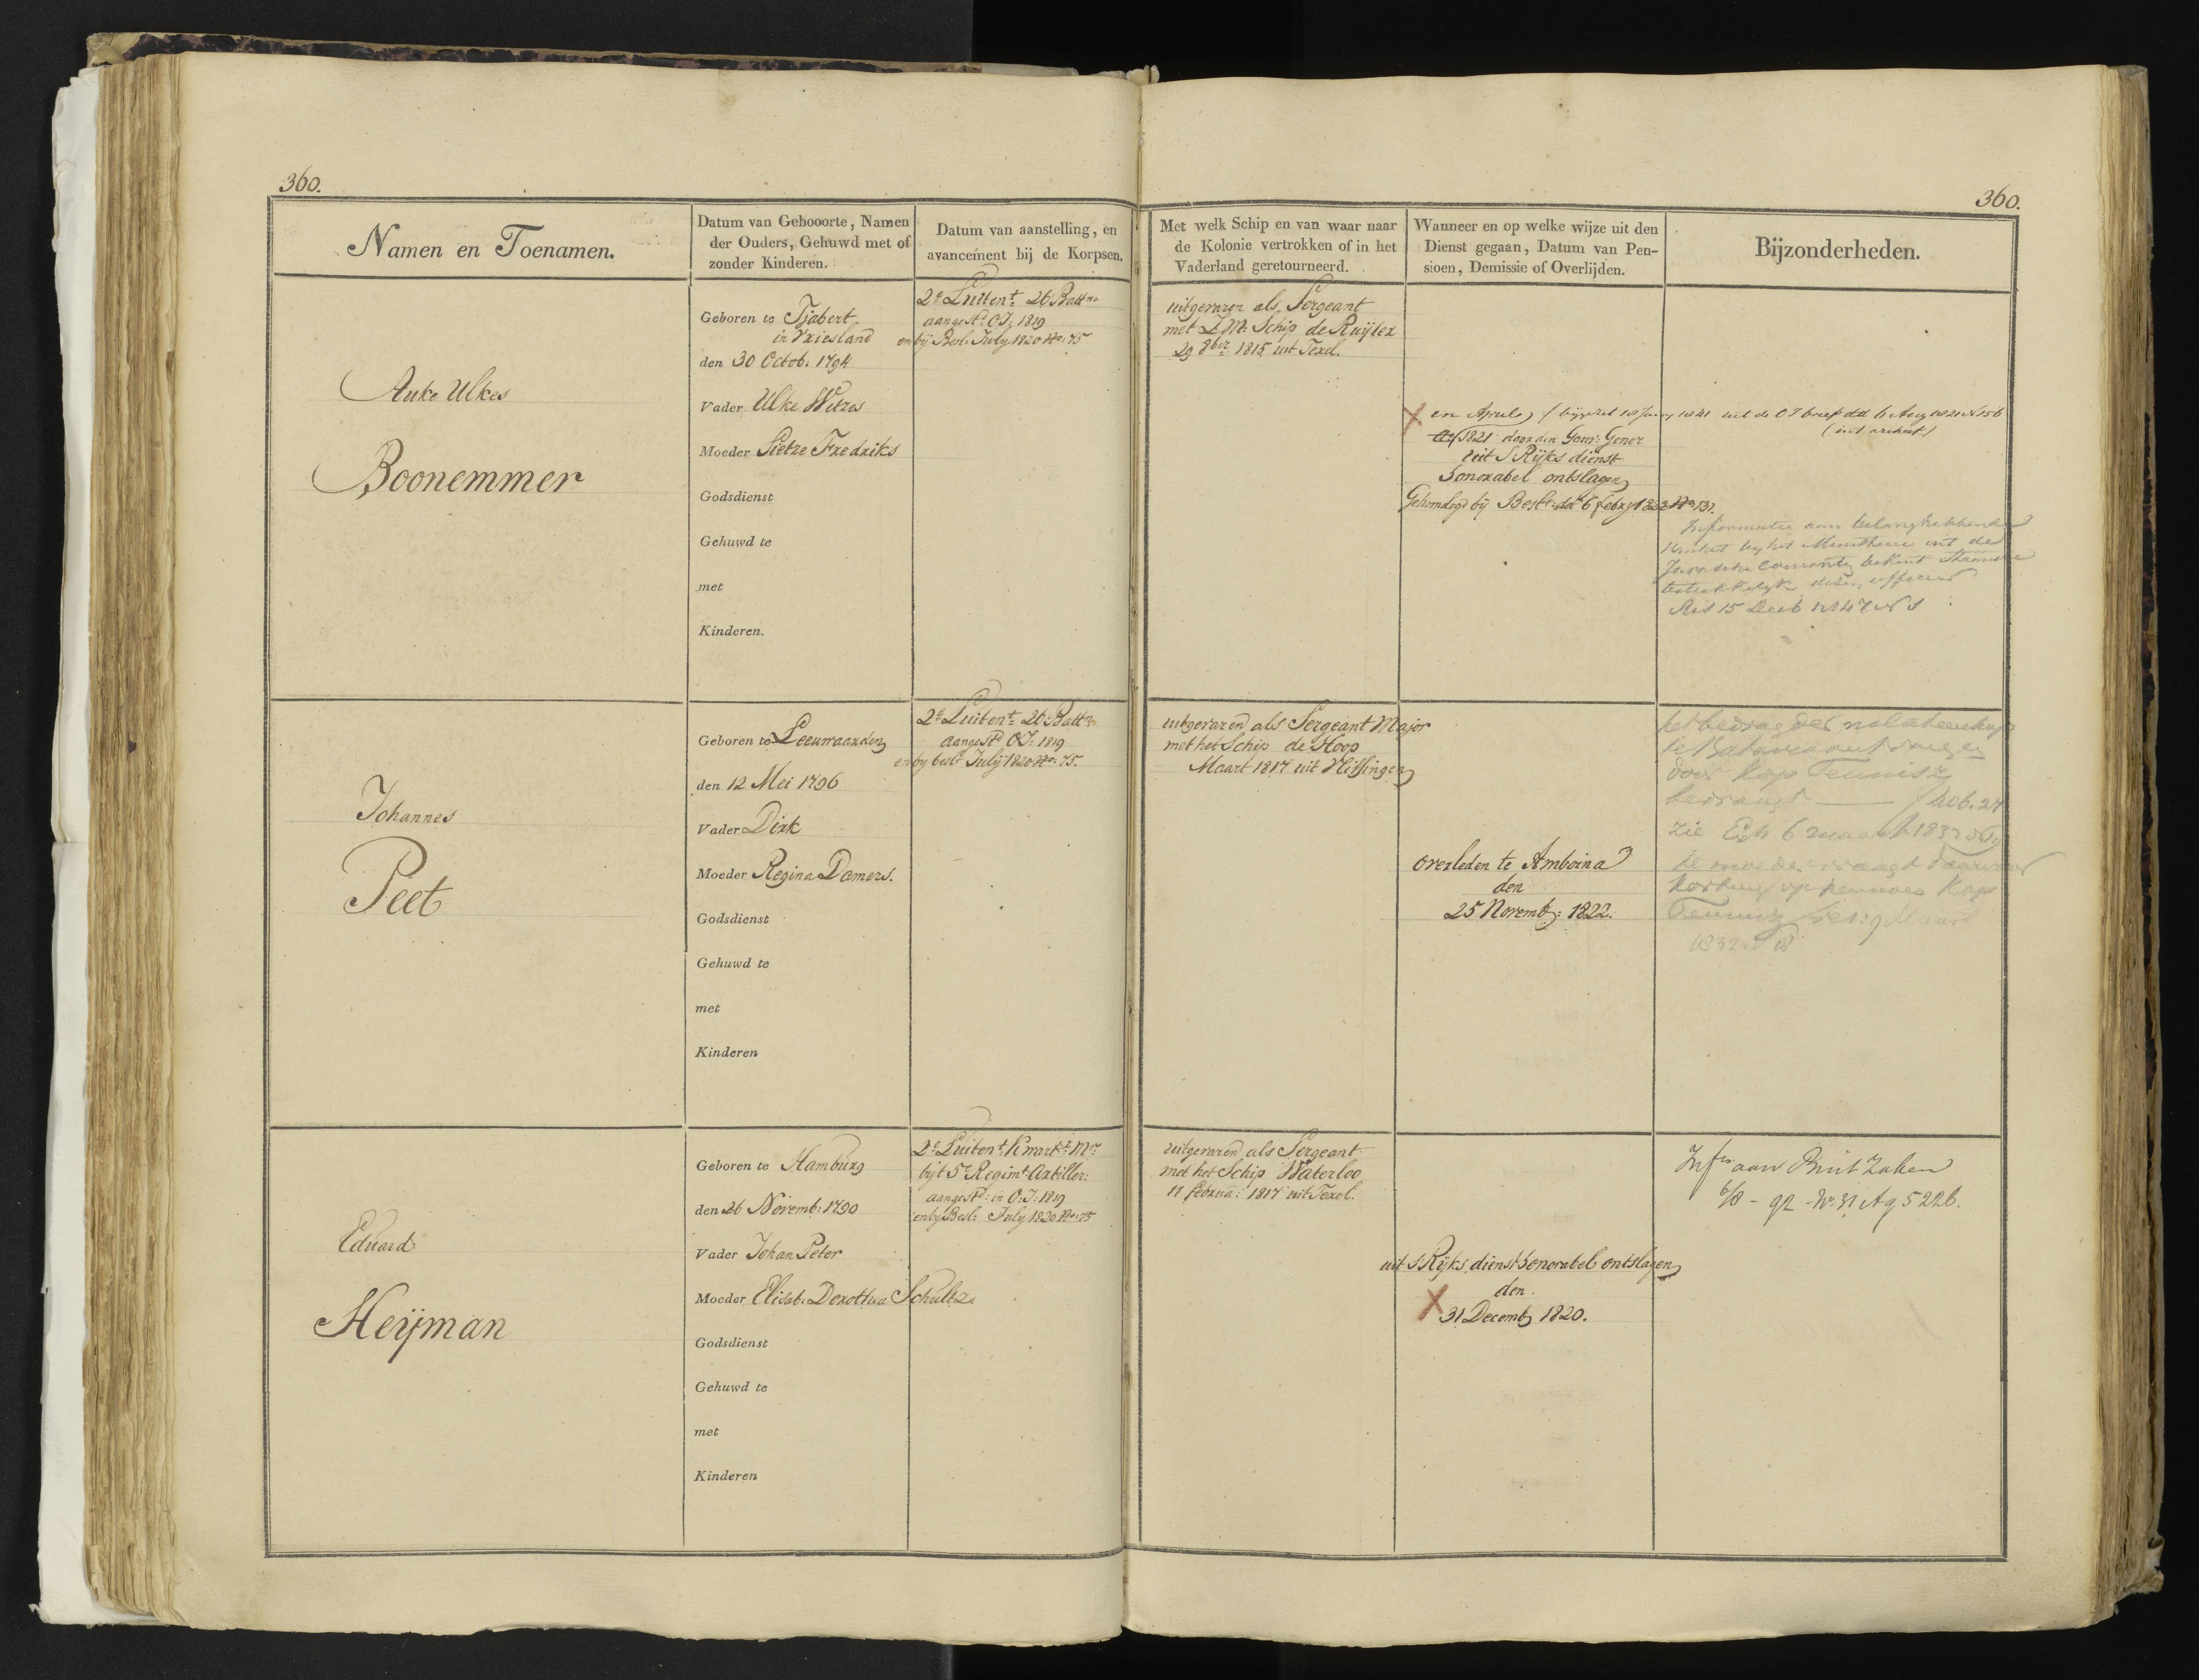 360.
360.
Namen en Toenamen.
Datum van Gebooorte, Namen
der Ouders, Gehuwd met of
zonder Kinderen.
Datum van aanstelling, en
avancement bij de Korpsen.
Met welk Schip en van waar naar
de Kolonie vertrokken of in het
Vaderland geretourneerd.
Wanneer en op welke wijze uit den
Dienst gegaan, Datum van Pen-
sioen, Demissie of Overlijden.
Bijzonderheden.
Auke Ulkes
Boonemmer
Geboren te Tjabert
in Vriesland
den 30 Octob: 1794
Vader Ulke Witzes
Moeder Sietze Fredriks
Godsdienst
Gehuwd te
met
Kinderen.
2e Luitent. 26 Battn.
aangest. O.I. 1819
en bij Besl. July 1820 No. 75
uitgevaren als Sergeant
met Z.M. Schip de Ruijter
29 8ber 1815 uit Texel.
in April
1821 door den Gouv: Gener
uit S Rijks dienst
honorabel ontslagen
bij Beslt. dd 6 Febry 1823 No. 131.
Informatie aan belanghebbende
15 Decb 1847 N 1
Johannes
Peet
Geboren te Leeuwaarden
den 12 Mei 1796
Vader Dirk
Moeder Regina Damers.
Godsdienst
Gehuwd te
met
Kinderen
2e Luitent. 26 Battn.
aangest. O.I. 1819
en by beslt July 1820 No. 75.
uitgevaren als Sergeant Major
met het Schip de Hoop
Maart 1817 uit Vlissingen
overleden te Amboina
den
25 Novemb: 1822.
het bedrag der nalatenschap
te Batavia ontvangen
door Kap Teunisz
bedraagt
zie 6 maart 1832
de moeder vraagt daarvoor
Korting op Kap
1832
Eduard
Heijman
Geboren te Hamburg
den 26 Novemb: 1790
Vader Johan Peter
Moeder Elisab. Dorothea Schultz.
Godsdienst
Gehuwd te
met
Kinderen
2e Luitent. Kwartr. Mr.
byt 5e Regimt Artiller:
aangestd: in O: I: 1819
en by Besl: July 1820 No: 75
uitgevaren als Sergeant
met het Schip Waterloo
11 februa: 1817 uit Texel.
uit S Rijks dienst honorabel ontslagen
den
31 Decemb 1820.
aan Zaken